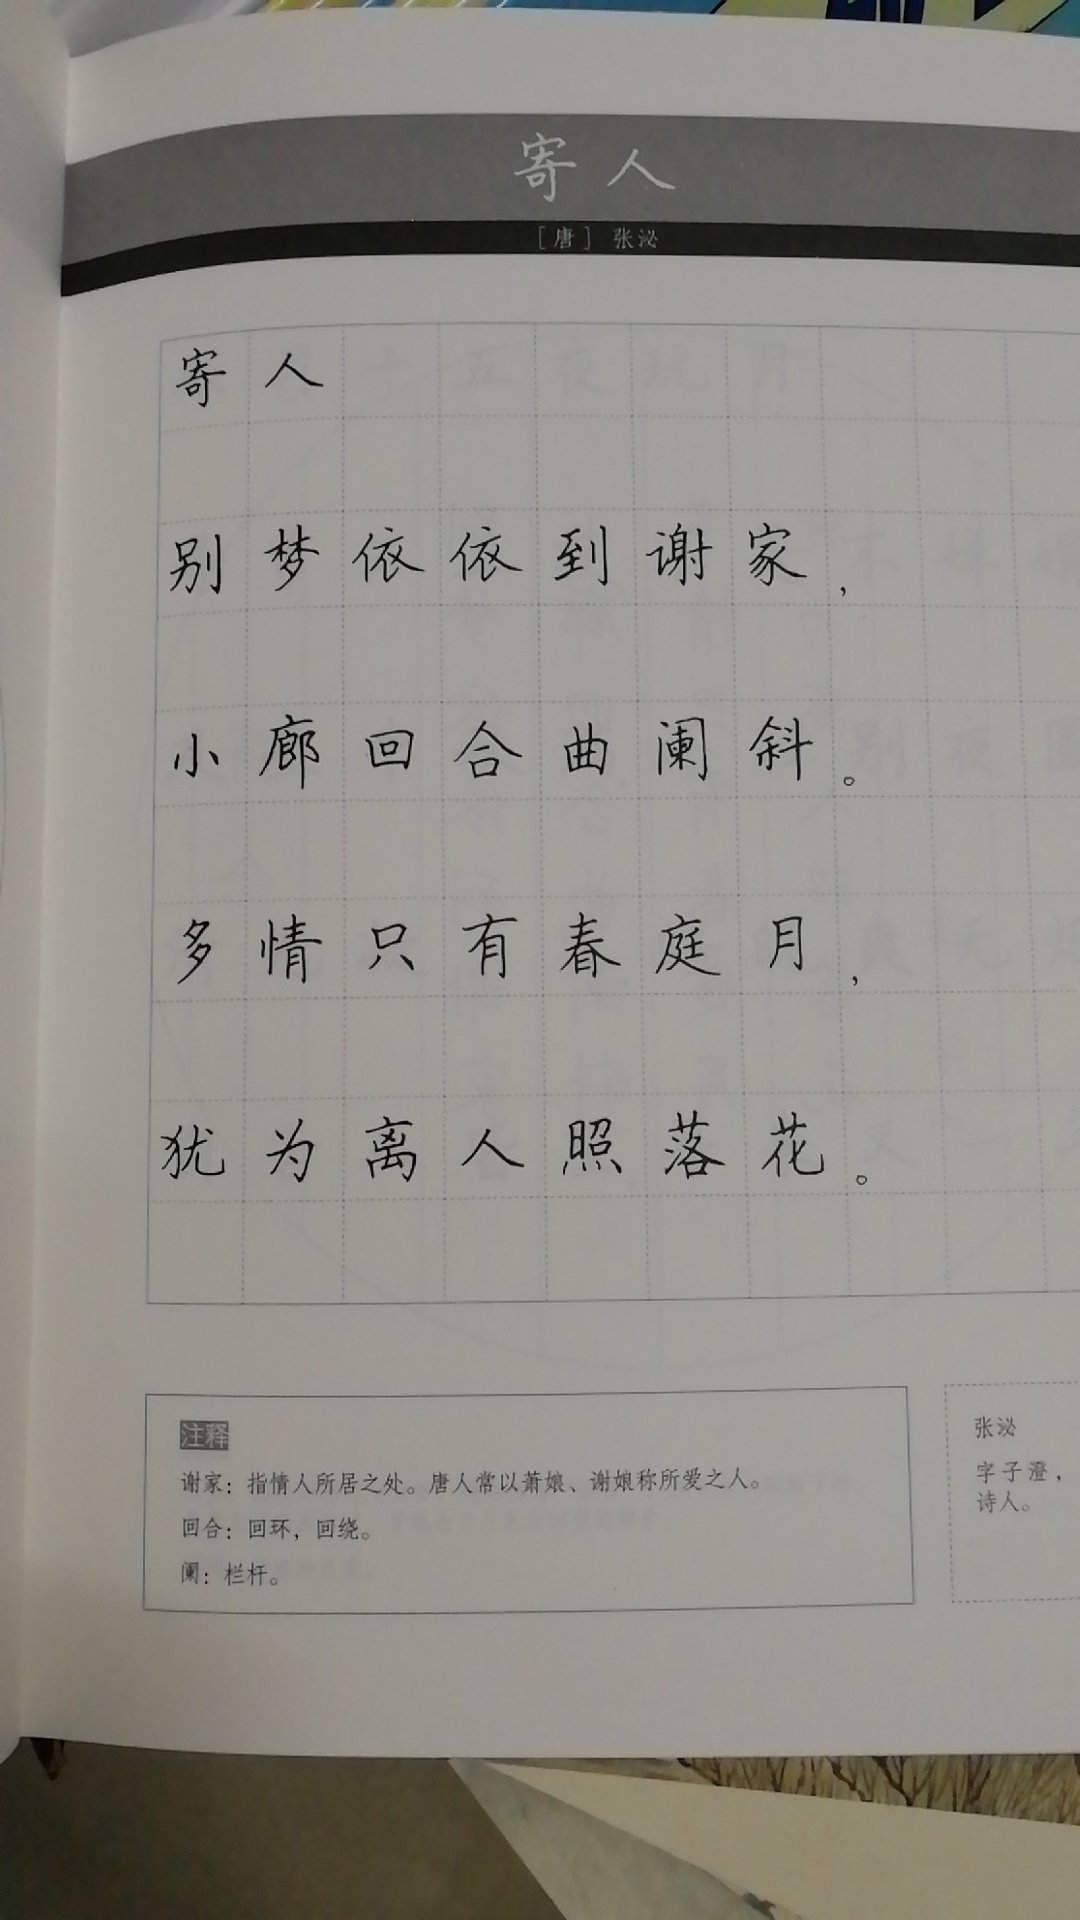 寄人
［唐］ 张泌
寄人
别梦依依到谢家，
小廊回合曲阑斜。
多情只有春庭月，
犹为离人照落花。
注释
谢家：指情人所居之处。唐人常以萧娘、谢娘称所爱之人。
回合：回环，回绕。
阑：栏杆。
张泌
字子澄，
诗人。